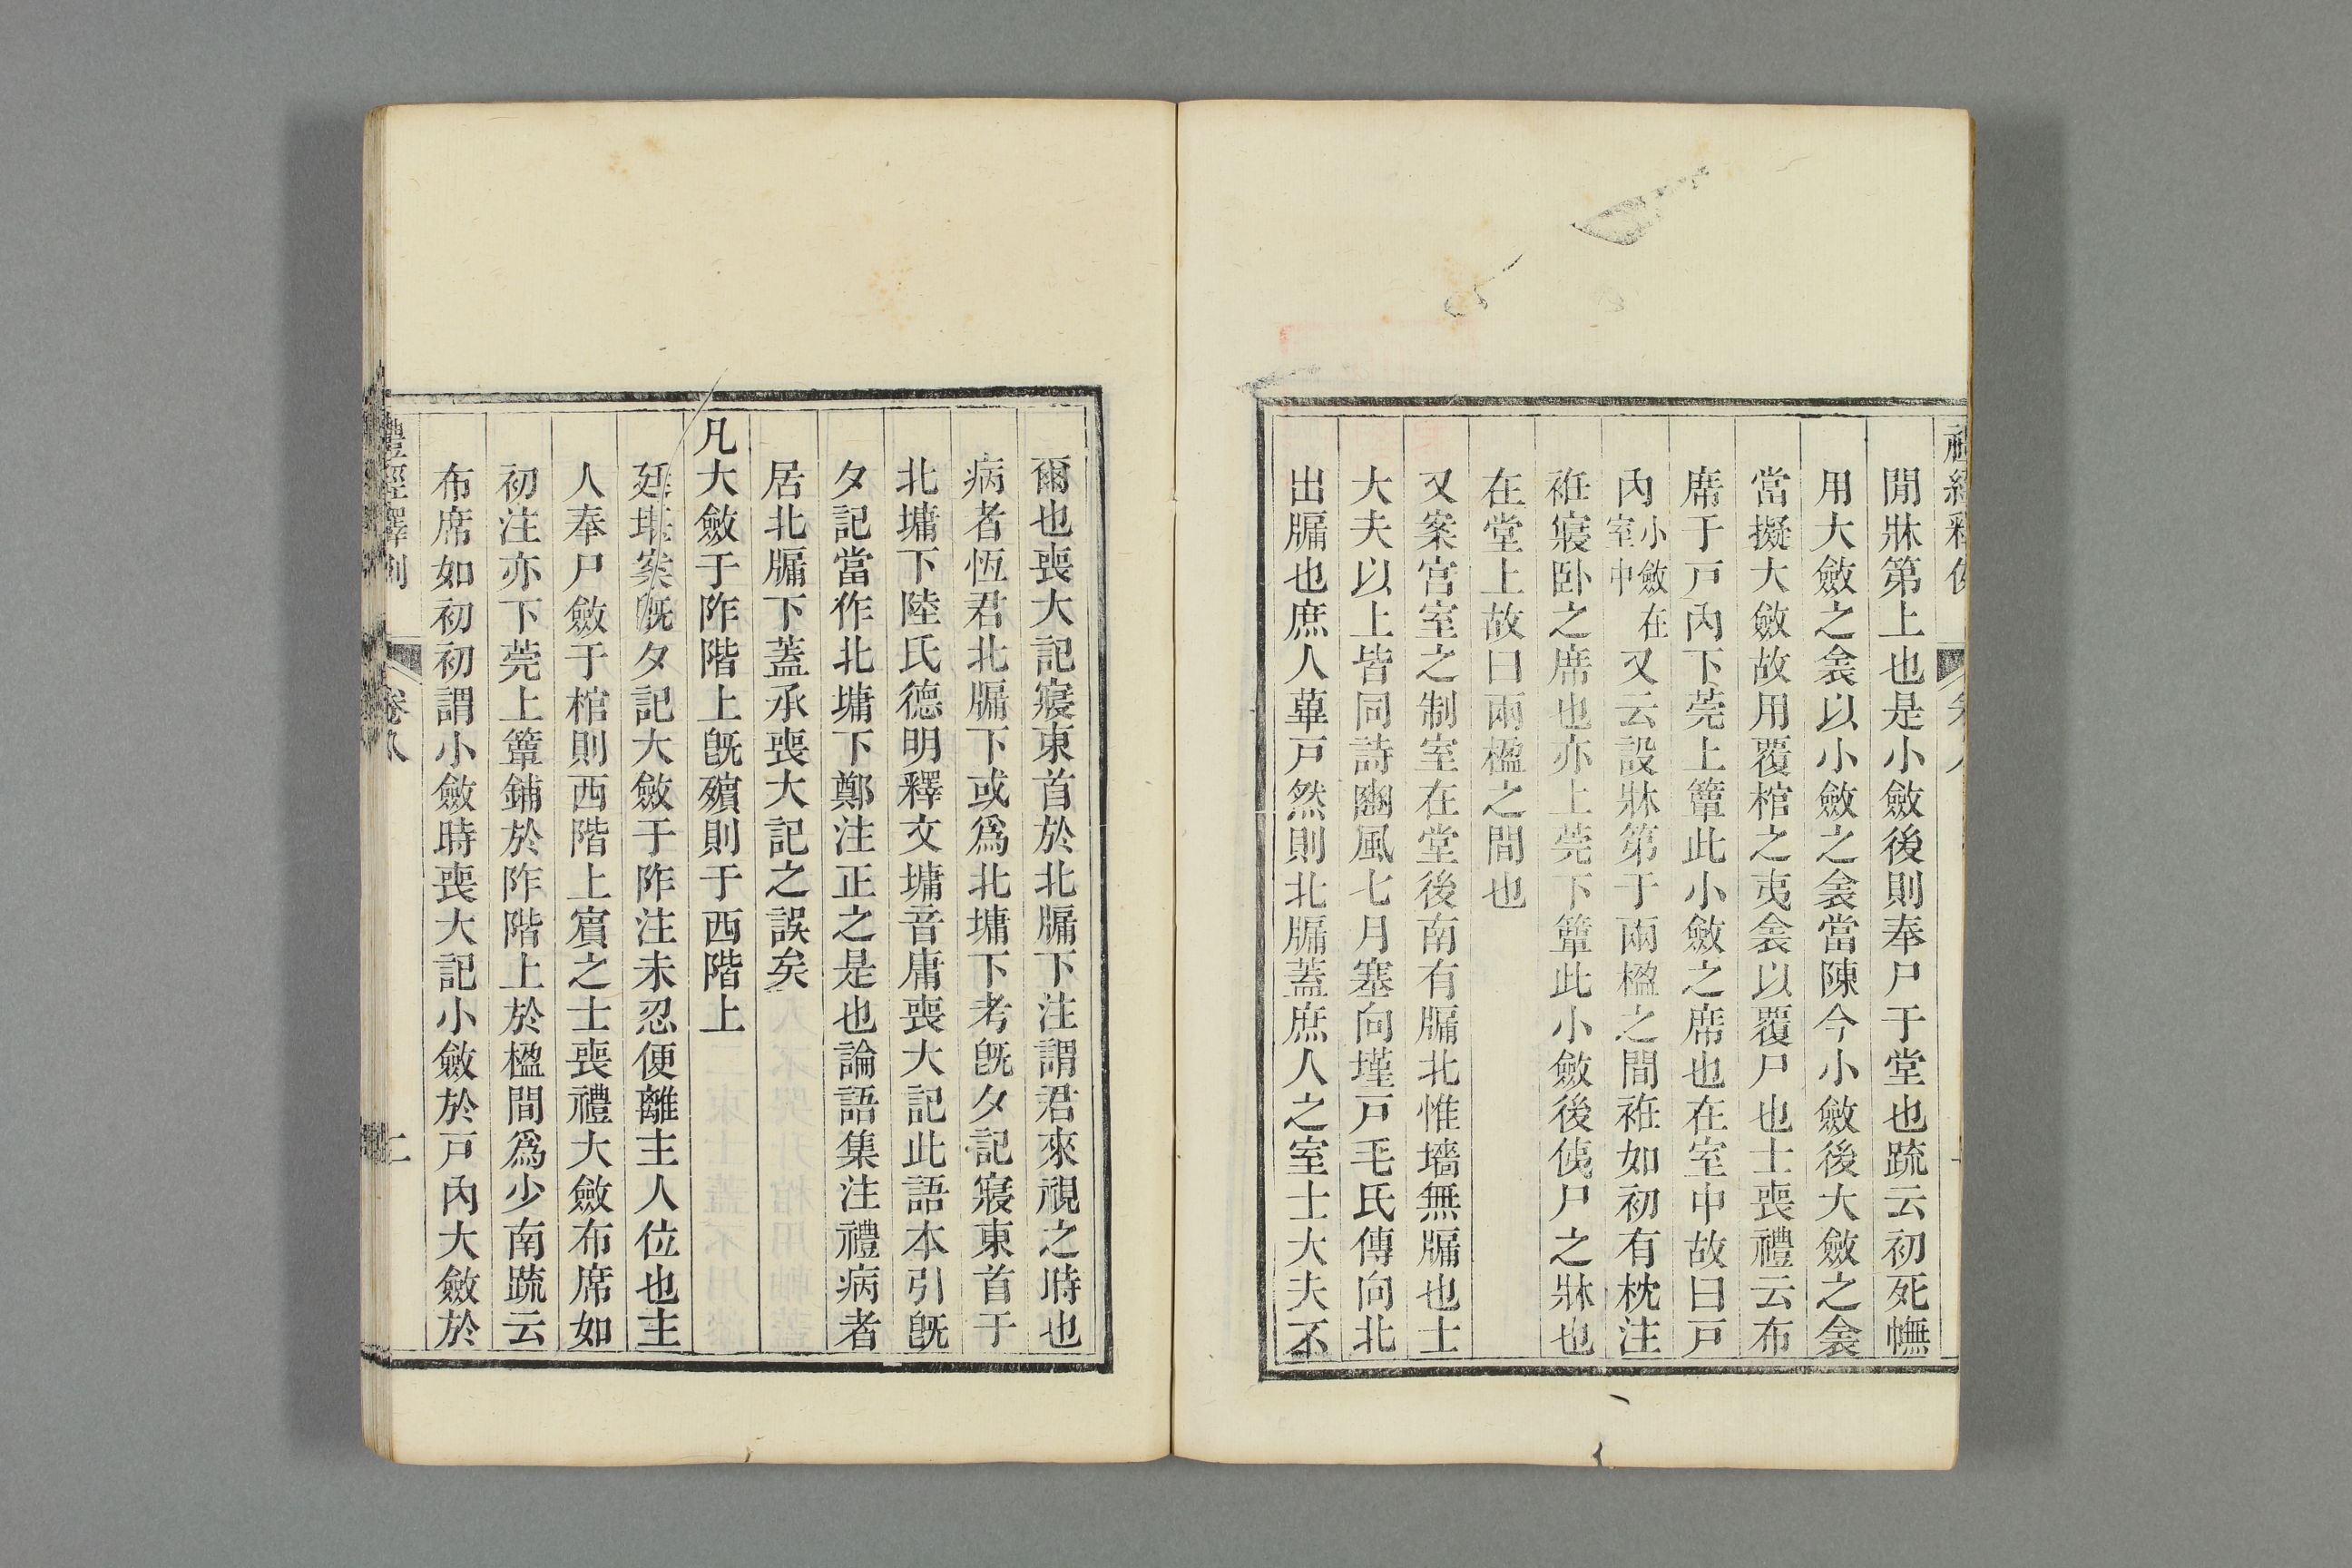 禮經釋例 卷八
閒牀第上也是小斂後則奉尸于堂也疏云初死幠
用大斂之衾以小斂之衾當陳今小斂後大斂之衾
當擬大斂故用覆棺之夷衾以覆尸也士喪禮云布
席于戸內下莞上簟此小斂之席也在室中故曰戸
內小斂在室中又云設牀第于兩楹之間衽如初有枕注
衽寢卧之席也亦上莞下簟此小斂後侇尸之牀也
在堂上故曰兩楹之間也
又案宮室之制室在堂後南有牖北惟墻無牖也士
大夫以上皆同詩豳風七月塞向墐戸毛氏傳向北
出牖也庶人蓽戸然則北牖蓋庶人之室士大夫不
爾也喪大記寢東首於北牖下注謂君來視之時也
病者恆君北牖下或爲北墉下考旣夕記寢東首于
北墉下陸氏德明釋文墉音庸喪大記此語本引旣
夕記當作北墉下鄭注正之是也論語集注禮病者
居北牖下蓋承喪大記之誤矣
凡大斂于阼階上旣殯則于西階上
廷堪案旣夕記大斂于阼注未忍便離主人位也主
人奉尸斂于棺則西階上賓之士喪禮大斂布席如
初注亦下莞上簟鋪於阼階上於楹間爲少南疏云
布席如初初謂小斂時喪大記小斂於戸內大斂於
禮經釋例 卷八